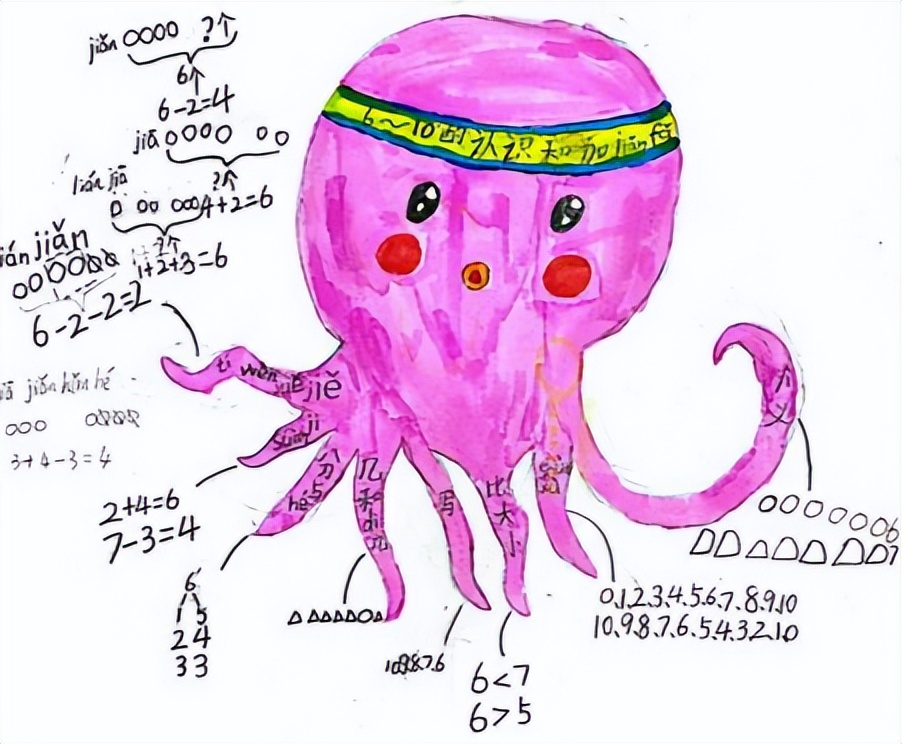 6~10的认识和加jiǎnfǎ
jiǎn ?个
6个
6-2=4
jiā
?个
4+2=6
lián jiā
?个
1+2+3=6
lián jiǎn
6-2-2=2
jiā jiǎn hùn hé
3+4-3=4
tí wèn jiě jué
jì suàn
2+4=6
7-3=4
分 hé
6
1 5
2 4
3 3
几和dì几
写
10.9.8.7.6
比大小
6<7
6>5
0.1.2.3.4.5.6.7.8.9.10
10.9.8.7.6.5.4.3.2.1.0
意义
6
7